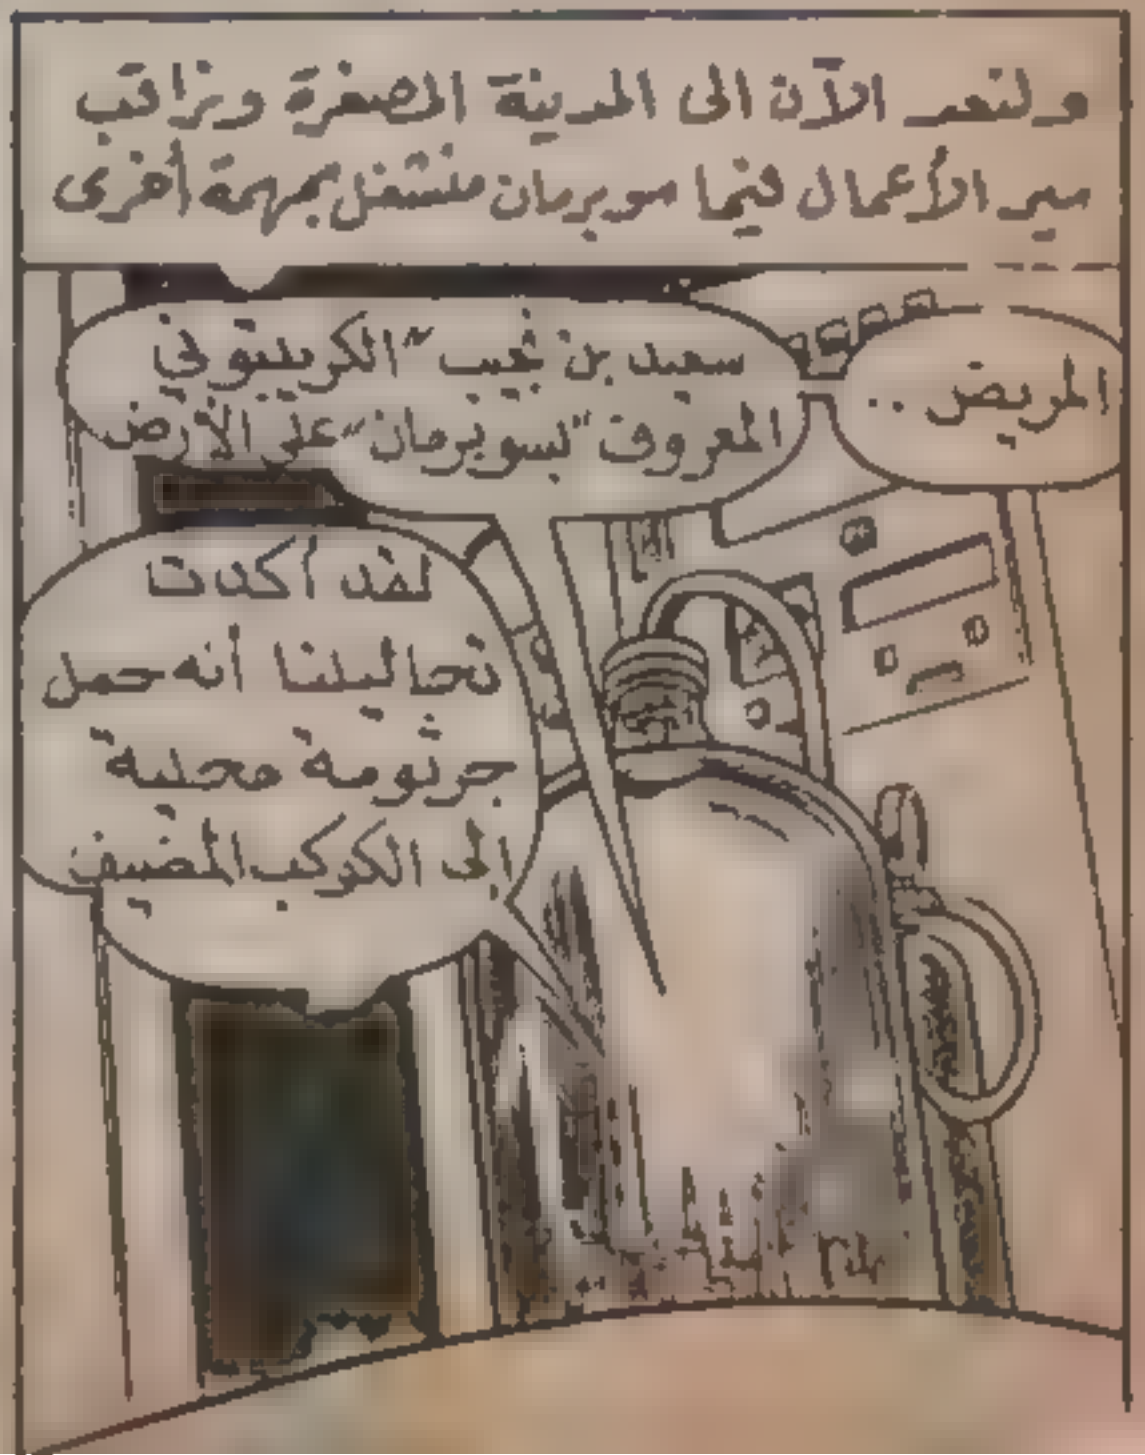 ولنعد الآن الى المدينة المصغرة ونراقب
سير الأعمال فيما سوبرمان منشغل بمهمة أخرى
المريض ..
سعيد بن نجيب "الكريبتوني
المعروف "بسوبرمان" على الأرض
لقد أكدت
تحاليلنا أنه حمل
جرثومة محلية
إلى الكوكب المضيف